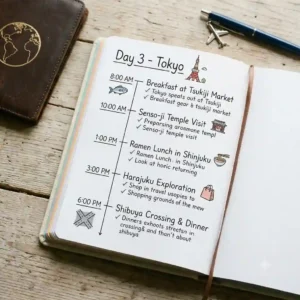 Day 3 - Tokyo
8:00 AM
Breakfast at Tsukiji Market
✓ Tokyo speats out at Tsukiji
✓ Breakfast gear & tsukiji market
10:00 AM
Senso-ji Temple Visit
✓ Preparsing arosmone templ
✓ Senso-ji temple visit
1:00 PM
Ramen Lunch in Shinjuku
✓ Ramen Lunch. in Shinjuku
✓ Look at honic returning
3:00 PM
Harajuku Exploration
✓ Shop in travel usopies to
✓ Shopping grounds of the mew
6:00 PM
Shibuya Crossing & Dinner
✓ Dinners exhosts streeten in
crossing& and thun't about
shibuya